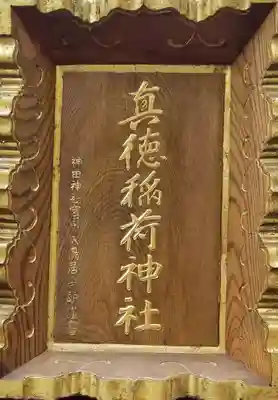 真徳稲荷神社
神田神社宮司 大鳥居